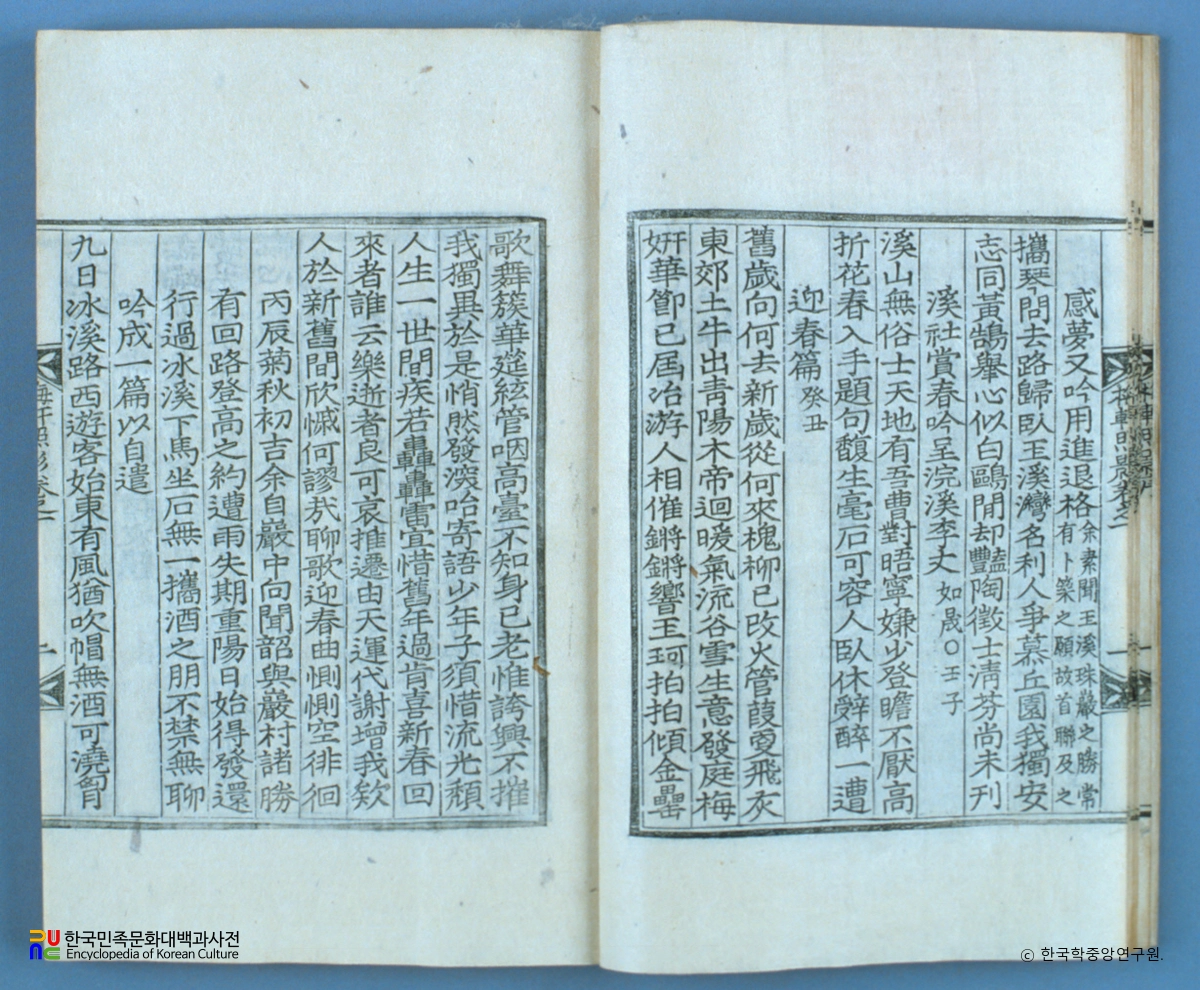 感夢又吟用進退格余素聞玉溪珠巖之勝常有卜築之願故首聯及之
攜琴問去路歸臥玉溪灣名利人爭慕丘園我獨安
志同黃鵠舉心似白鷗閒却豔陶徵士淸芬尚未刊
溪社賞春吟呈浣溪李丈如晟○壬子
溪山無俗士天地有吾曹對晤寧嫌少登瞻不厭高
折花春入手題句馥生毫石可容人臥休辤醉一遭
迎春篇癸丑
舊歲向何去新歲從何來槐柳已改火管葭爰飛灰
東郊土牛出靑陽木帝迴暖氣流谷雪生意發庭梅
姸華節已屆冶游人相催鏘鏘響玉珂拍拍傾金罍
歌舞簇華筵絃管咽高臺不知身已老惟誇興不摧
我獨異於是悄然發深咍寄語少年子須惜流光頹
人生一世間疾若轟轟雷宜惜舊年過肯喜新春回
來者誰云樂逝者良可哀推遷由天運代謝增我欸
人於新舊間欣慽何謬㢤聊歌迎春曲惻惻空徘徊
丙辰菊秋初吉余自巖中向聞韶與巖村諸勝
有回路登高之約遭雨失期重陽日始得發還
行過冰溪下馬坐石無一攜酒之朋不禁無聊
吟成一篇以自遣
九日冰溪路西遊客始東有風猶吹帽無酒可澆胷
한국민족문화대백과사전
Encyclopedia of Korean Culture
ⓒ 한국학중앙연구원.